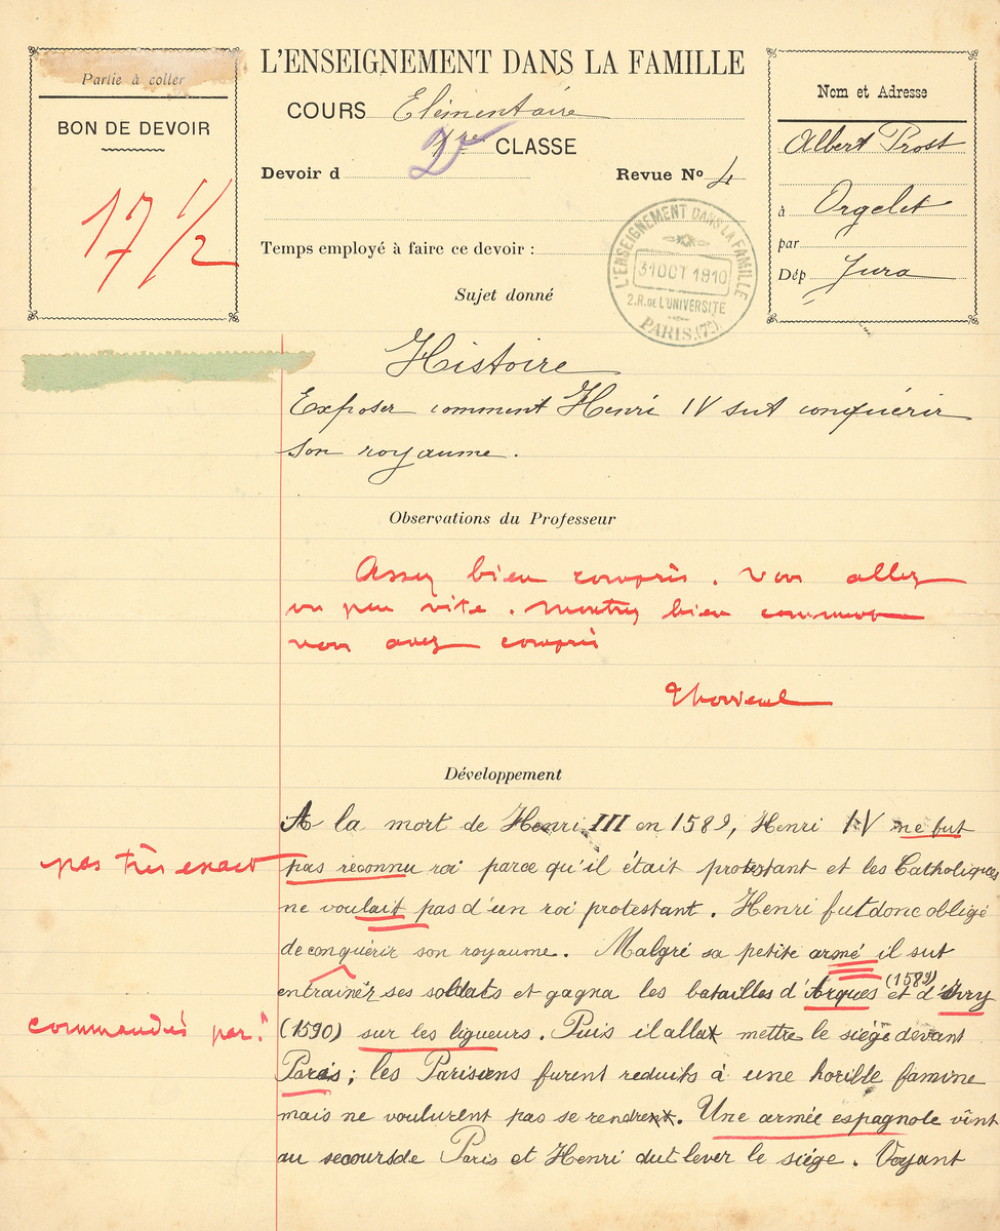 Partie à coller
BON DE DEVOIR
17 1/2
L'ENSEIGNEMENT DANS LA FAMILLE
COURS Elémentaire
CLASSE
Devoir d
Revue Nº 4
Temps employé à faire ce devoir :
Nom et Adresse
Albert Prost
à Orgelet
par
Dép Jura
L'ENSEIGNEMENT DANS LA FAMILLE
31 OCT 1910
2.R.DE L'UNIVERSITÉ
PARIS (7e)
Sujet donné
Histoire
Exposer comment Henri IV sut conquérir
son royaume.
Observations du Professeur
Assez bien compris. Vous allez
un peu vite. Montrez bien comment
vous avez compris
Développement
A la mort de Henri III en 1589, Henri IV ne fut
pas très exact
pas reconnu roi parce qu'il était protestant et les Catholiques
ne voulait pas d'un roi protestant. Henri fut donc obligé
de conquérir son royaume. Malgré sa petite armé il sut
entrainér ses soldats et gagna les batailles d'Arques (1589) et d'Ivry
commandés par ?
(1590) sur les ligueurs. Puis il alla mettre le siége devant
Paris; les Parisiens furent reduits à une horille famine
mais ne voulurent pas se rendre. Une armée espagnole vint
au secours de Paris et Henri dut lever le siége. Voyant